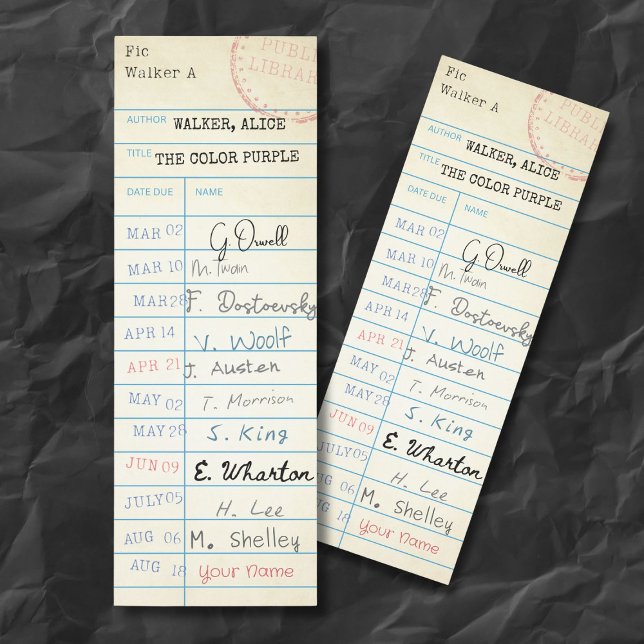 Fic
Walker A
PUBLIC
LIBRARY
AUTHOR WALKER, ALICE
TITLE THE COLOR PURPLE
DATE DUE NAME
MAR 02 G. Orwell
MAR 10 M. Twain
MAR 28 F. Dostoevsky
APR 14 V. Woolf
APR 21 J. Austen
MAY 02 T. Morrison
MAY 28 S. King
JUN 09 E. Wharton
JULY 05 H. Lee
AUG 06 M. Shelley
AUG 18 Your Name
Fic
Walker A
PUBLIC
LIBRARY
AUTHOR WALKER, ALICE
TITLE THE COLOR PURPLE
DATE DUE NAME
MAR 02 G. Orwell
MAR 10 M. Twain
MAR 28 F. Dostoevsky
APR 14 V. Woolf
APR 21 J. Austen
MAY 02 T. Morrison
MAY 28 S. King
JUN 09 E. Wharton
JULY 05 H. Lee
AUG 06 M. Shelley
AUG 18 Your Name